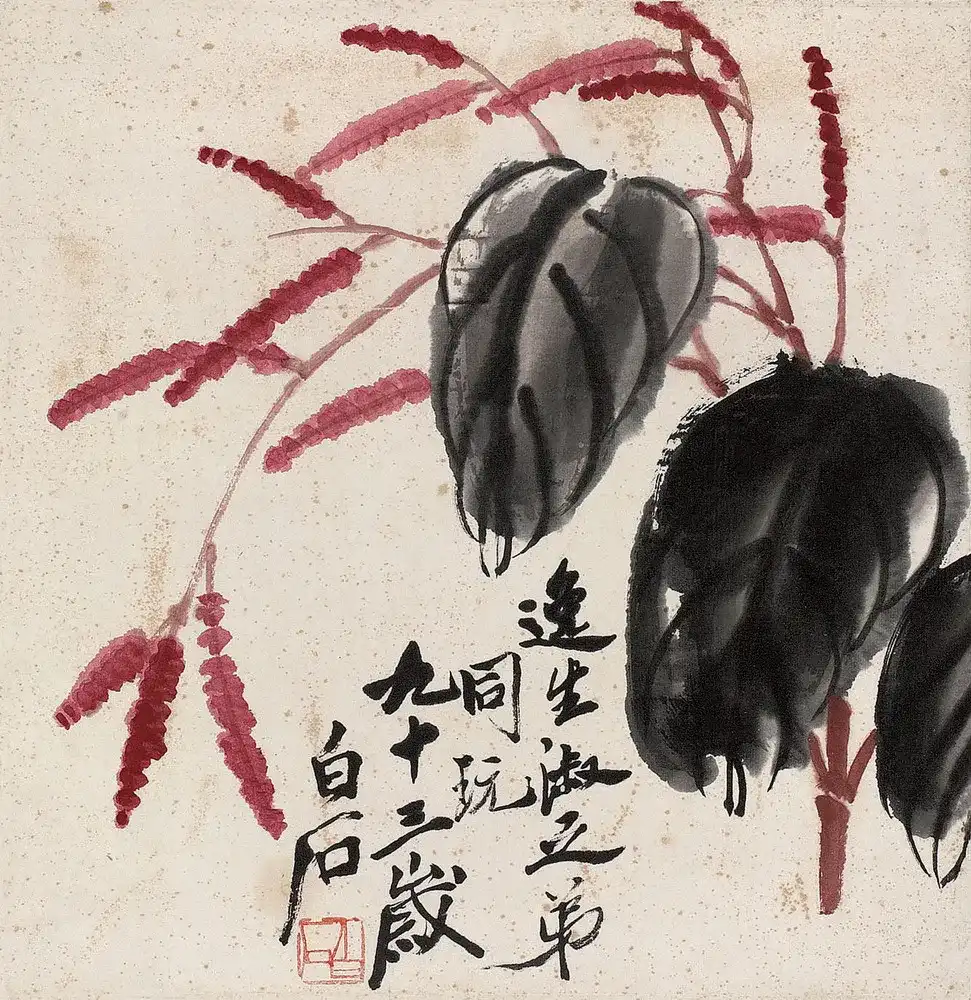 逸生淑立弟
同玩
九十三歲
白石